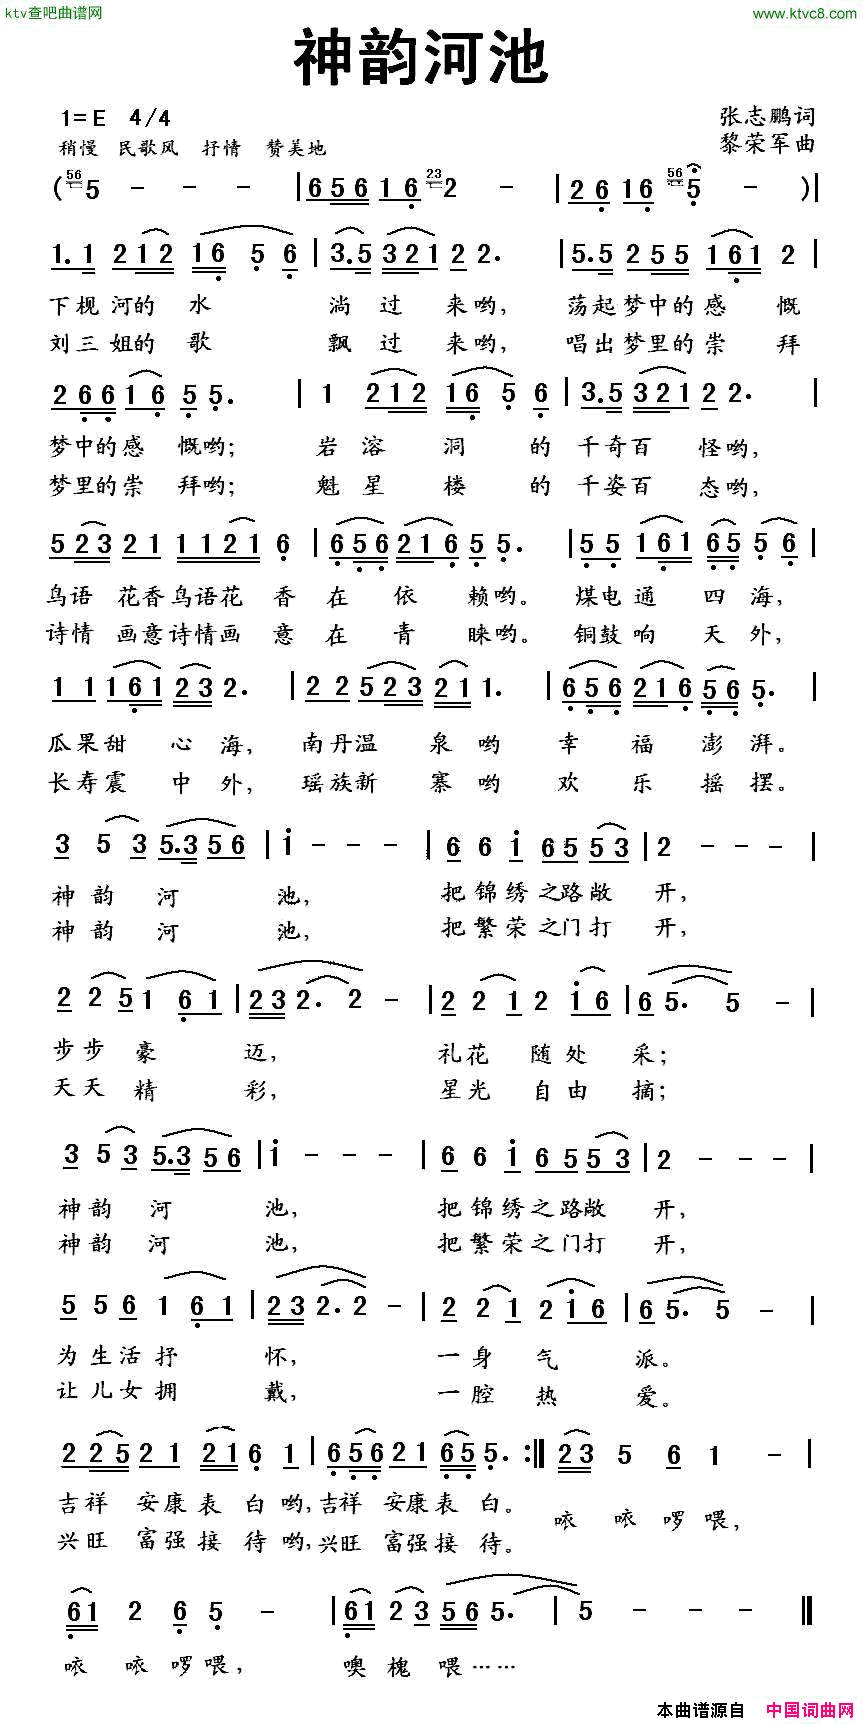 ktv查吧曲谱网
www.ktvc8.com
神韵河池
1=E 4/4
张志鹏词
稍慢 民歌风 抒情 赞美地
黎荣军曲
(56 5 - - | 6 5 6 1 6 23 2 - | 2 6 1 6 56 5 - )|
1. 1 2 1 2 1 6 5 6 | 3. 5 3 2 1 2 2. 5. 5 2 5 5 1 6 1 2 |
下枧河的水 淌过来哟, 荡起梦中的感慨
刘三姐的歌 飘过来哟, 唱出梦里的崇拜
2 6 6 1 6 5 5. | 1 2 1 2 1 6 5 6 | 3. 5 3 2 1 2 2. |
梦中的感慨哟; 岩溶洞的千奇百怪哟,
梦里的崇拜哟; 魁星楼的千姿百态哟,
5 2 3 2 1 1 1 2 1 6 | 6 5 6 2 1 6 5 5. | 5 5 1 6 1 6 5 5 6 |
鸟语花香鸟语花香在依赖哟。煤电通四海,
诗情画意诗情画意在青睐哟。铜鼓响天外,
1 1 1 6 1 2 3 2. | 2 2 5 2 3 2 1 1. | 6 5 6 2 1 6 5 6 5. |
瓜果甜心海, 南丹温泉哟幸福澎湃。
长寿震中外, 瑶族新寨哟欢乐摇摆。
3 5 3 5. 3 5 6 | i - - - | 6 6 i 6 5 5 3 | 2 - - - |
神韵河池, 把锦绣之路敞开,
神韵河池, 把繁荣之门打开,
2 2 5 1 6 1 | 2 3 2. 2 - | 2 2 1 2 i 6 | 6 5. 5 - |
步步豪迈, 礼花随处采;
天天精彩, 星光自由摘;
3 5 3 5. 3 5 6 | i - - - | 6 6 i 6 5 5 3 | 2 - - - |
神韵河池, 把锦绣之路敞开,
神韵河池, 把繁荣之门打开,
5 5 6 1 6 1 | 2 3 2. 2 - | 2 2 1 2 i 6 | 6 5. 5 - |
为生活抒怀, 一身气派。
让儿女拥戴, 一腔热爱。
2 2 5 2 1 2 1 6 1 | 6 5 6 2 1 6 5 5. :‖ 2 3 5 6 1 - |
吉祥安康表白哟,吉祥安康表白。
咴咴啰喂,
兴旺富强接待哟,兴旺富强接待。
6 1 2 6 5 - | 6 1 2 3 5 6 5. | 5 - - - ‖
咴咴啰喂, 噢槐喂……
本曲谱源自 中国词曲网